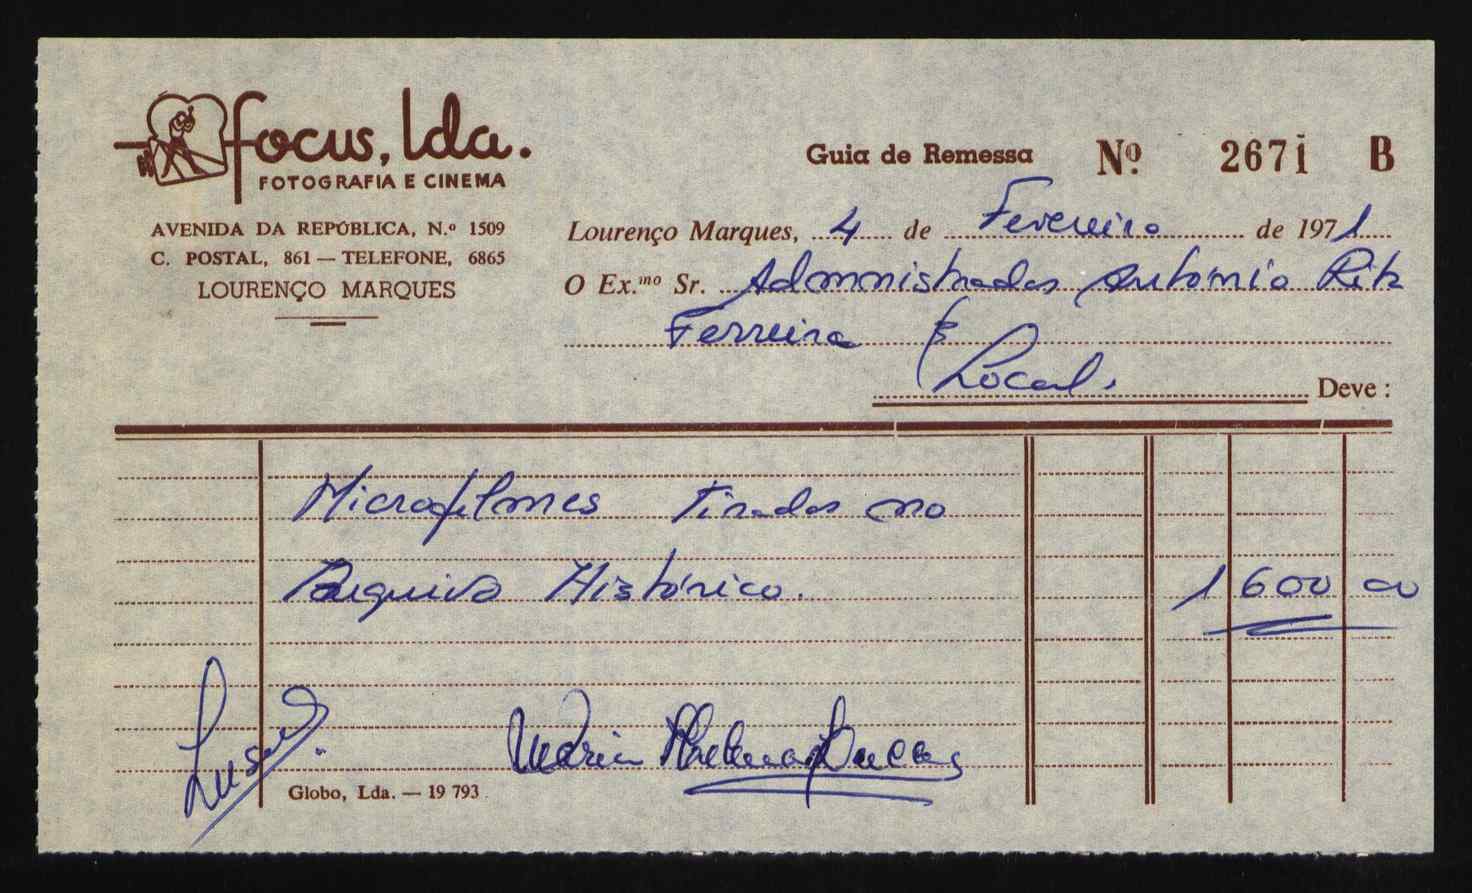 focus, lda.
FOTOGRAFIA E CINEMA
AVENIDA DA REPÚBLICA, N.º 1509
C. POSTAL, 861 — TELEFONE, 6865
LOURENÇO MARQUES
Guia de Remessa Nº 2671 B
Lourenço Marques, 4 de Fevereiro de 1971
O Ex.mo Sr. Administrador António Rita
Ferreira
Local. Deve:
Microfilmes Tirados no
Arquivo Histórico. 1 600 00
Maria
Globo, Lda. — 19 793